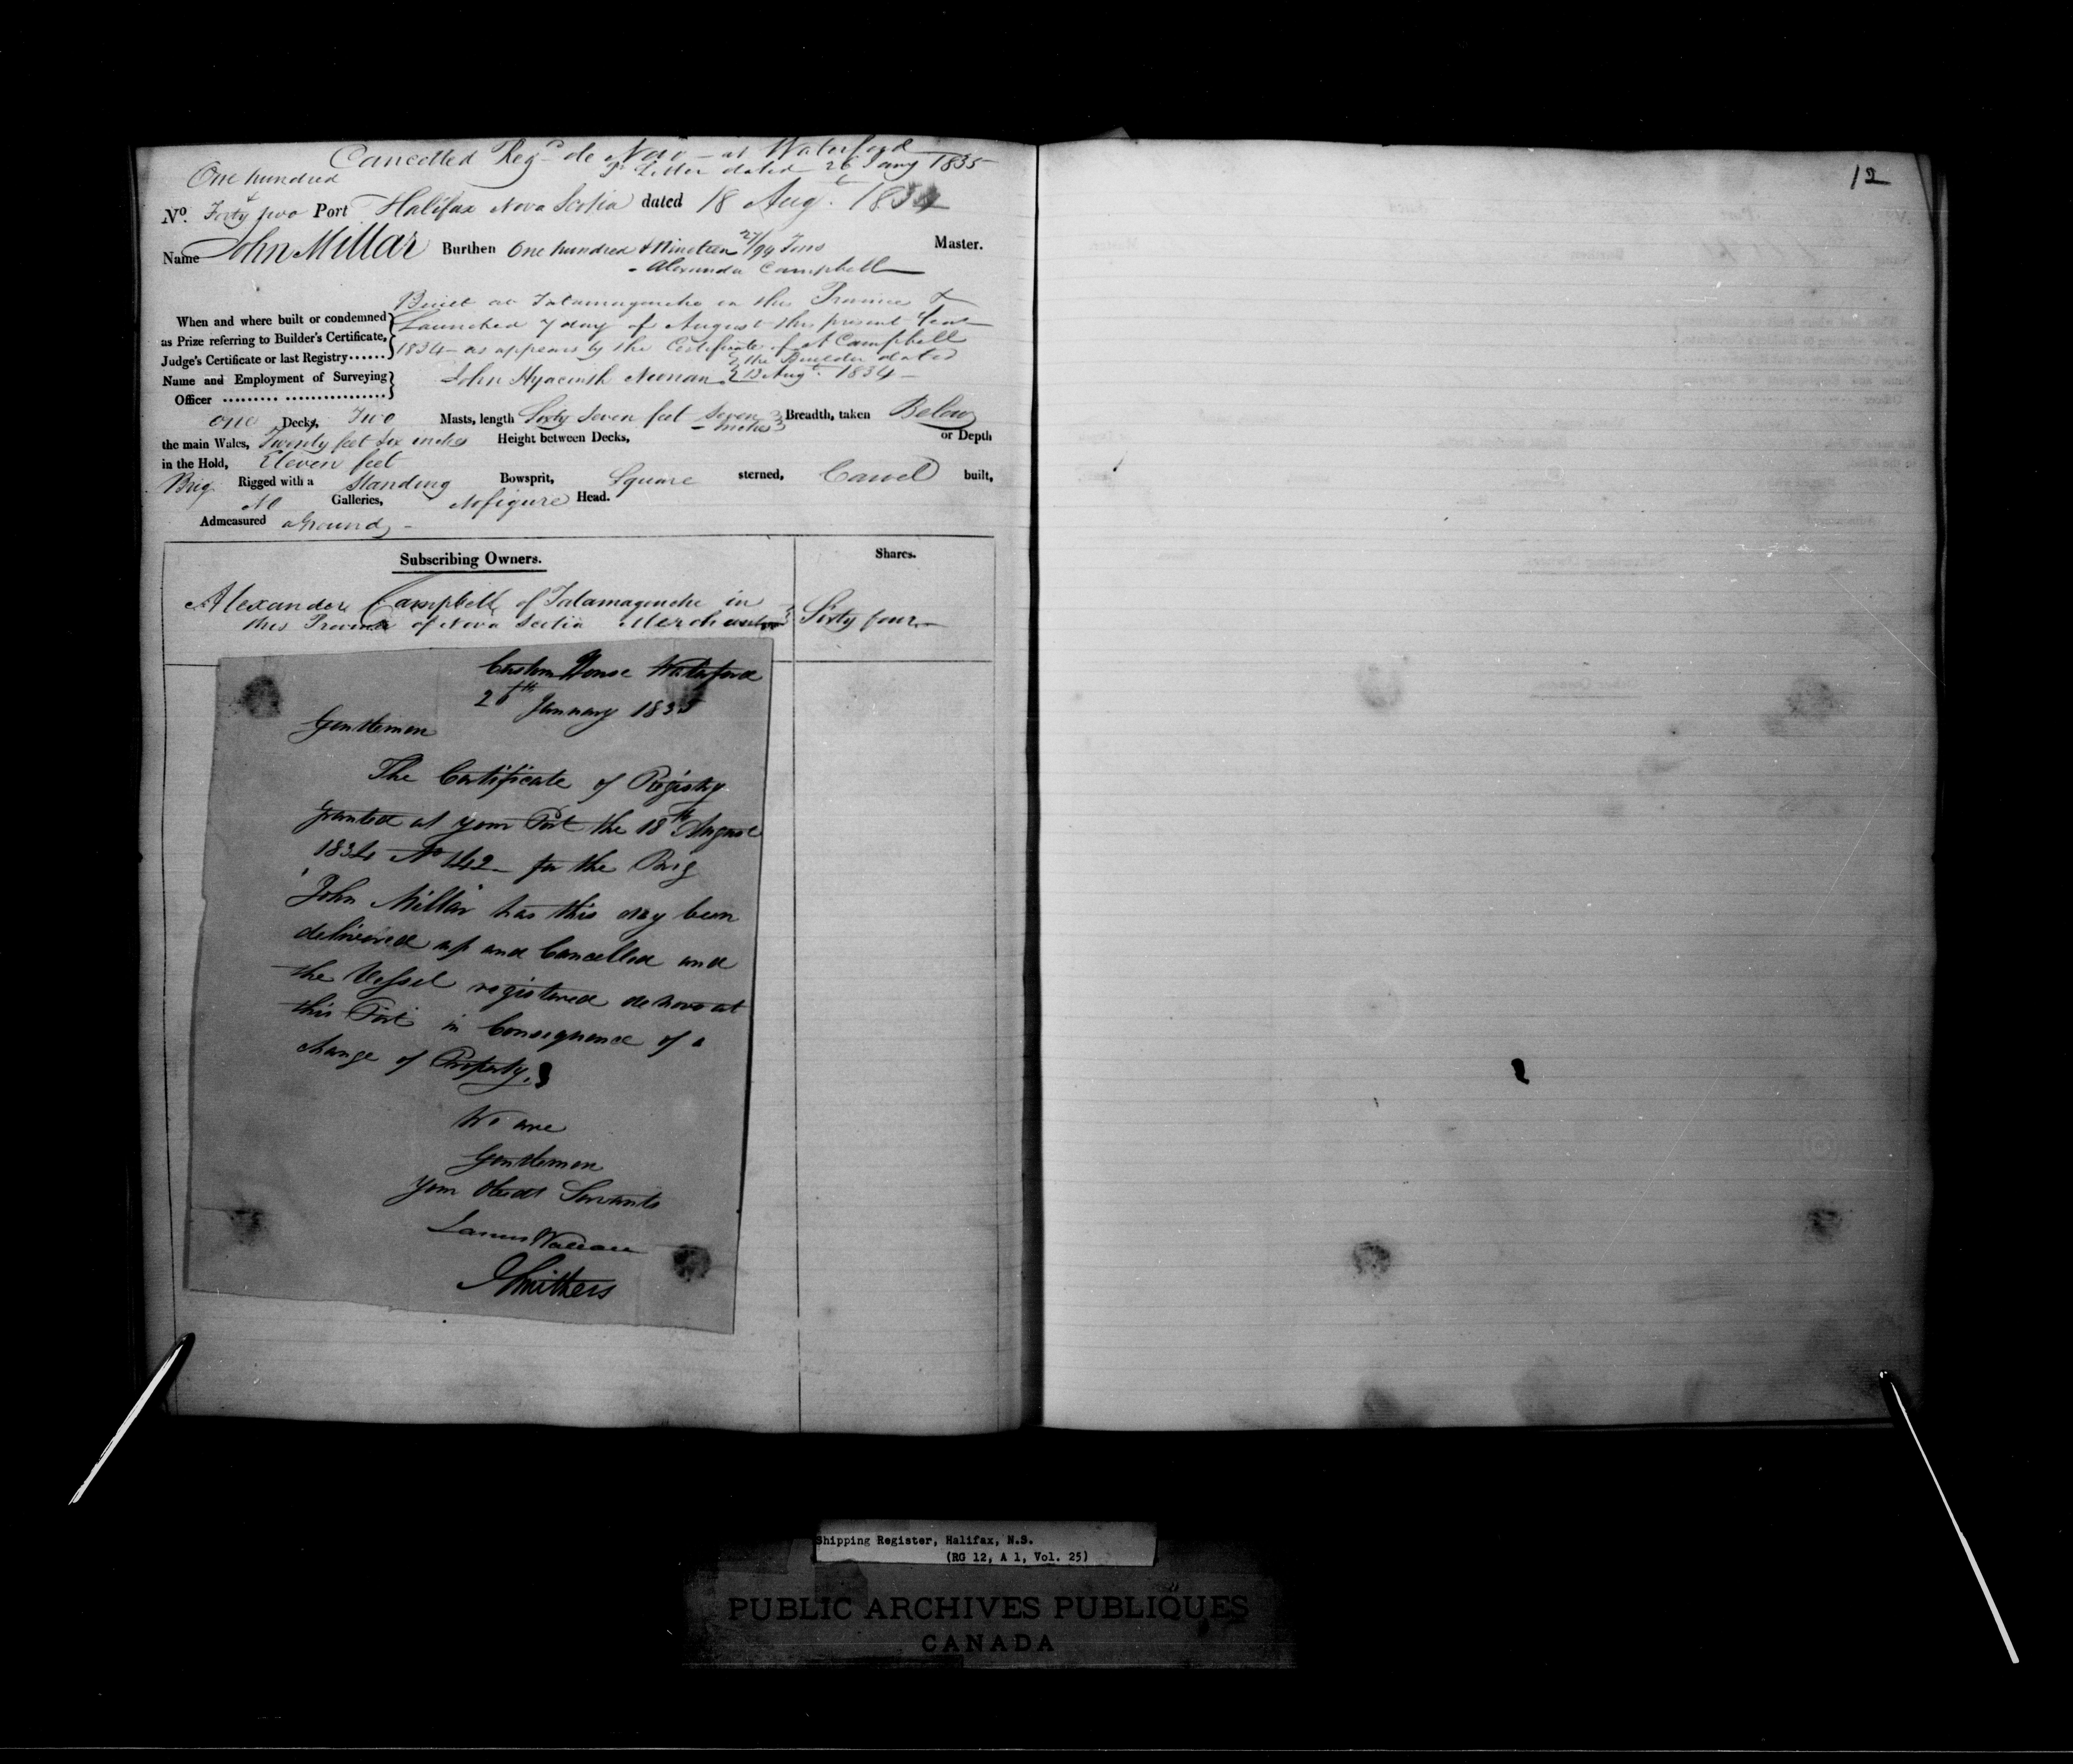 Cancelled Regd de Novo - at Waterford
Pr Letter dated 26 Jany 1835
One hundred
No. Forty & two Port Halifax Nova Scotia dated 18 Augt. 1834
Name John Millar Burthen One hundred & Nineteen 27/94 Tons Master.
- Alexander Campbell
Built at Tatamagouche in this Province &
When and where built or condemned
Launched 7 day of August this present Year
as Prize referring to Builder's Certificate,
1834 - as appears by the Certificate of A Campbell
Judge's Certificate or last Registry......
the Builder dated
Name and Employment of Surveying
John Hyacinth Noonan 13 Augt. 1834 -
Officer
one Decks, Two Masts, length Sixty Seven feet Seven Inches Breadth, taken Below
the main Wales, Twenty feet Six inches Height between Decks, or Depth
in the Hold, Eleven feet
Brig Rigged with a Standing Bowsprit, Square sterned, Carvel built,
No Galleries, No figure Head.
Admeasured aGround -
Subscribing Owners. Shares.
Alexander Campbell of Tatamagouche in
this Province of Nova Scotia Merchant Sixty four
Custom House Waterford
26th January 1835
Gentlemen
The Certificate of Registry
granted at your Port the 18th August
1834 No 142 - for the Brig
"John Millar" has this day been
delivered up and Cancelled and
the Vessel registered de novo at
this Port in Consequence of a
change of Property.
We are
Gentlemen
Your Obedt Servants
James Wallace
Smithers
12
Shipping Register, Halifax, N.S.
(RG 12, A 1, Vol. 25)
PUBLIC ARCHIVES PUBLIQUES
CANADA